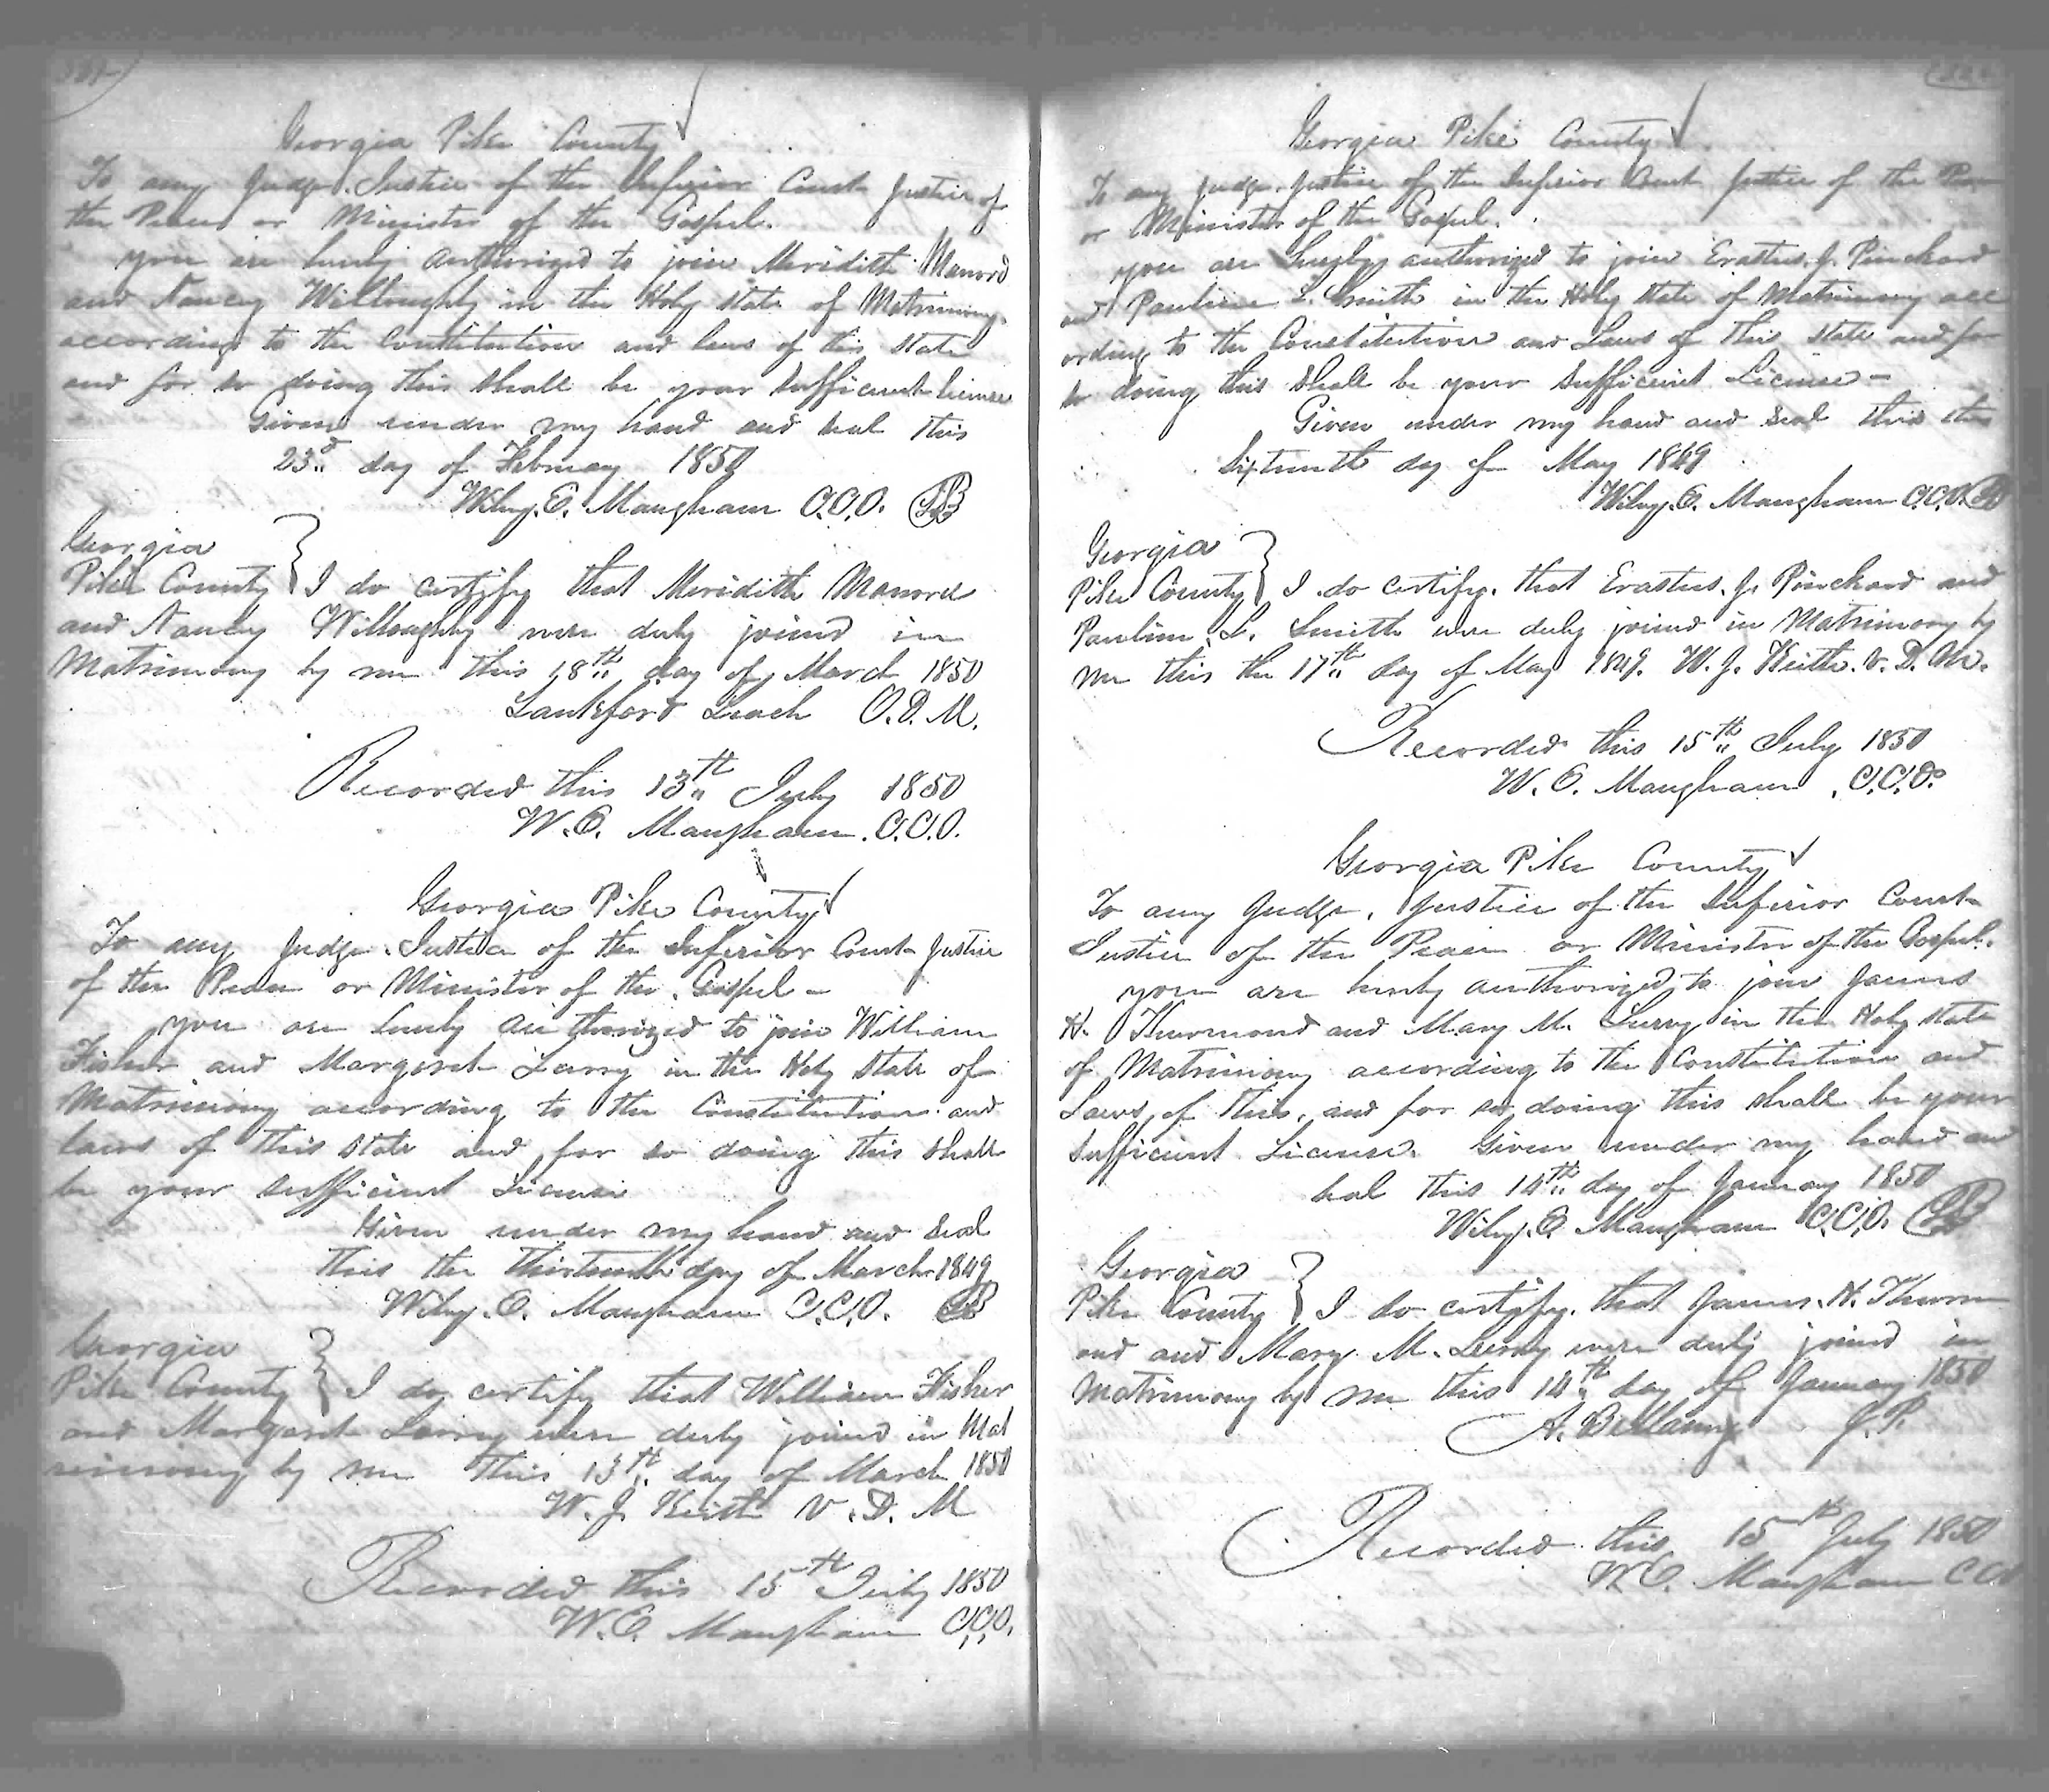 Georgia Pike County
To any Judge. Justice of the Inferior Court Justice of
the Peace or Minister of the Gospel.
you are hereby authorized to join Meridith Manord
and Nancy Willoughby in the Holy state of Matrimony.
according to the Constitution and laws of this state
and for so doing this shall be your sufficient license
Given under my hand and seal this
23d day of February 1850
Wiley. E. Mangham C.C.O. LS
Georgia
Pike County } I do certify that Meridith Manord
and Nancy Willoughby were duly joined in
Matrimony by me this 18th day of March 1850
Lankford Leach O.D.M.
Recorded this 13th July 1850
W.E. Mangham. C.C.O.
Georgia Pike County
To any Judge. Justice of the Inferior Court Justice
of the Peace or Minister of the Gospel -
you are hereby authorized to join William
Fisher and Margaret Larry in the Holy State of
Matrimony according to the Constitution and
laws of this state and for so doing this shall
be your sufficient License
Given under my hand and seal
this the thirteenth day of March 1849
Wiley. E. Mangham C.C.O. LS
Georgia
Pike County } I do certify that William Fisher
and Margaret Larry were duly joined in Mat
rimony by me this 13th day of March 1850
W. J. Keith V. D. M
Recorded this 15th July 1850
W.E. Mangham C.C.O.
Georgia Pike County
To any Judge. Justice of the Inferior Court Justice of the Peace
or Minister of the Gospel.
you are hereby authorized to join Erastus. J. Pinckard
and Pauline L. Smith in the Holy State of Matrimony acc
ording to the Constitution and Laws of this state and for
so doing this shall be your sufficient License -
Given under my hand and seal this the
Sixteenth day of May 1849
Wiley. E. Mangham C.C.O. LS
Georgia
Pike County } I do certify. that Erastus. J. Pinckard and
Pauline. L. Smith were duly joined in Matrimony by
me this the 17th day of May 1849. W. J. Keith. V. D. M.
Recorded this 15th July 1850
W. E. Mangham. C.C.O.
Georgia Pike County
To any Judge, Justice of the Inferior Court
Justice of the Peace or Minister of the Gospel.
you are hereby authorized to join James
N. Thurmond and Mary M. Lurry in the Holy state
of Matrimony according to the Constitution and
Laws of this, and for so doing this shall be your
sufficient License. Given under my hand and
seal this 14th day of January 1850
Wiley. E. Mangham C.C.O. LS
Georgia
Pike County } I do certify. that James. N. Thurm
ond and Mary M. Lurry were duly joined in
Matrimony by me this 14th day of January 1850
A. Bellamy J.P.
Recorded this 15th July 1850
W.E. Mangham C.C.O